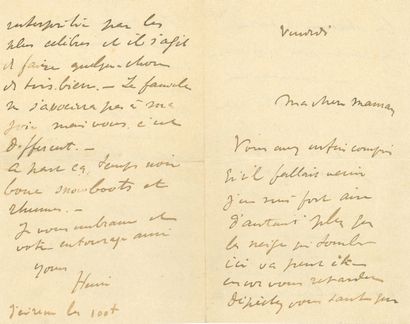 Vendredi
Ma chère Maman
Vous avez enfin compris
qu'il fallait venir
J'en suis fort aise
d'autant plus que
la neige qui tombe
ici va peut être
encor vous retarder
Dépêchez vous tant que
interprétée par les
plus célèbres et il s'agit
de faire quelque chose
de très bien. — La famille
ne s'associera pas à ma
joie mais vous, c'est
différent. —
A part ça, temps noir
boue snowboots et
rhumes. —
Je vous embrasse et
votre entourage aussi
Yours
Henri
J'écrirai les